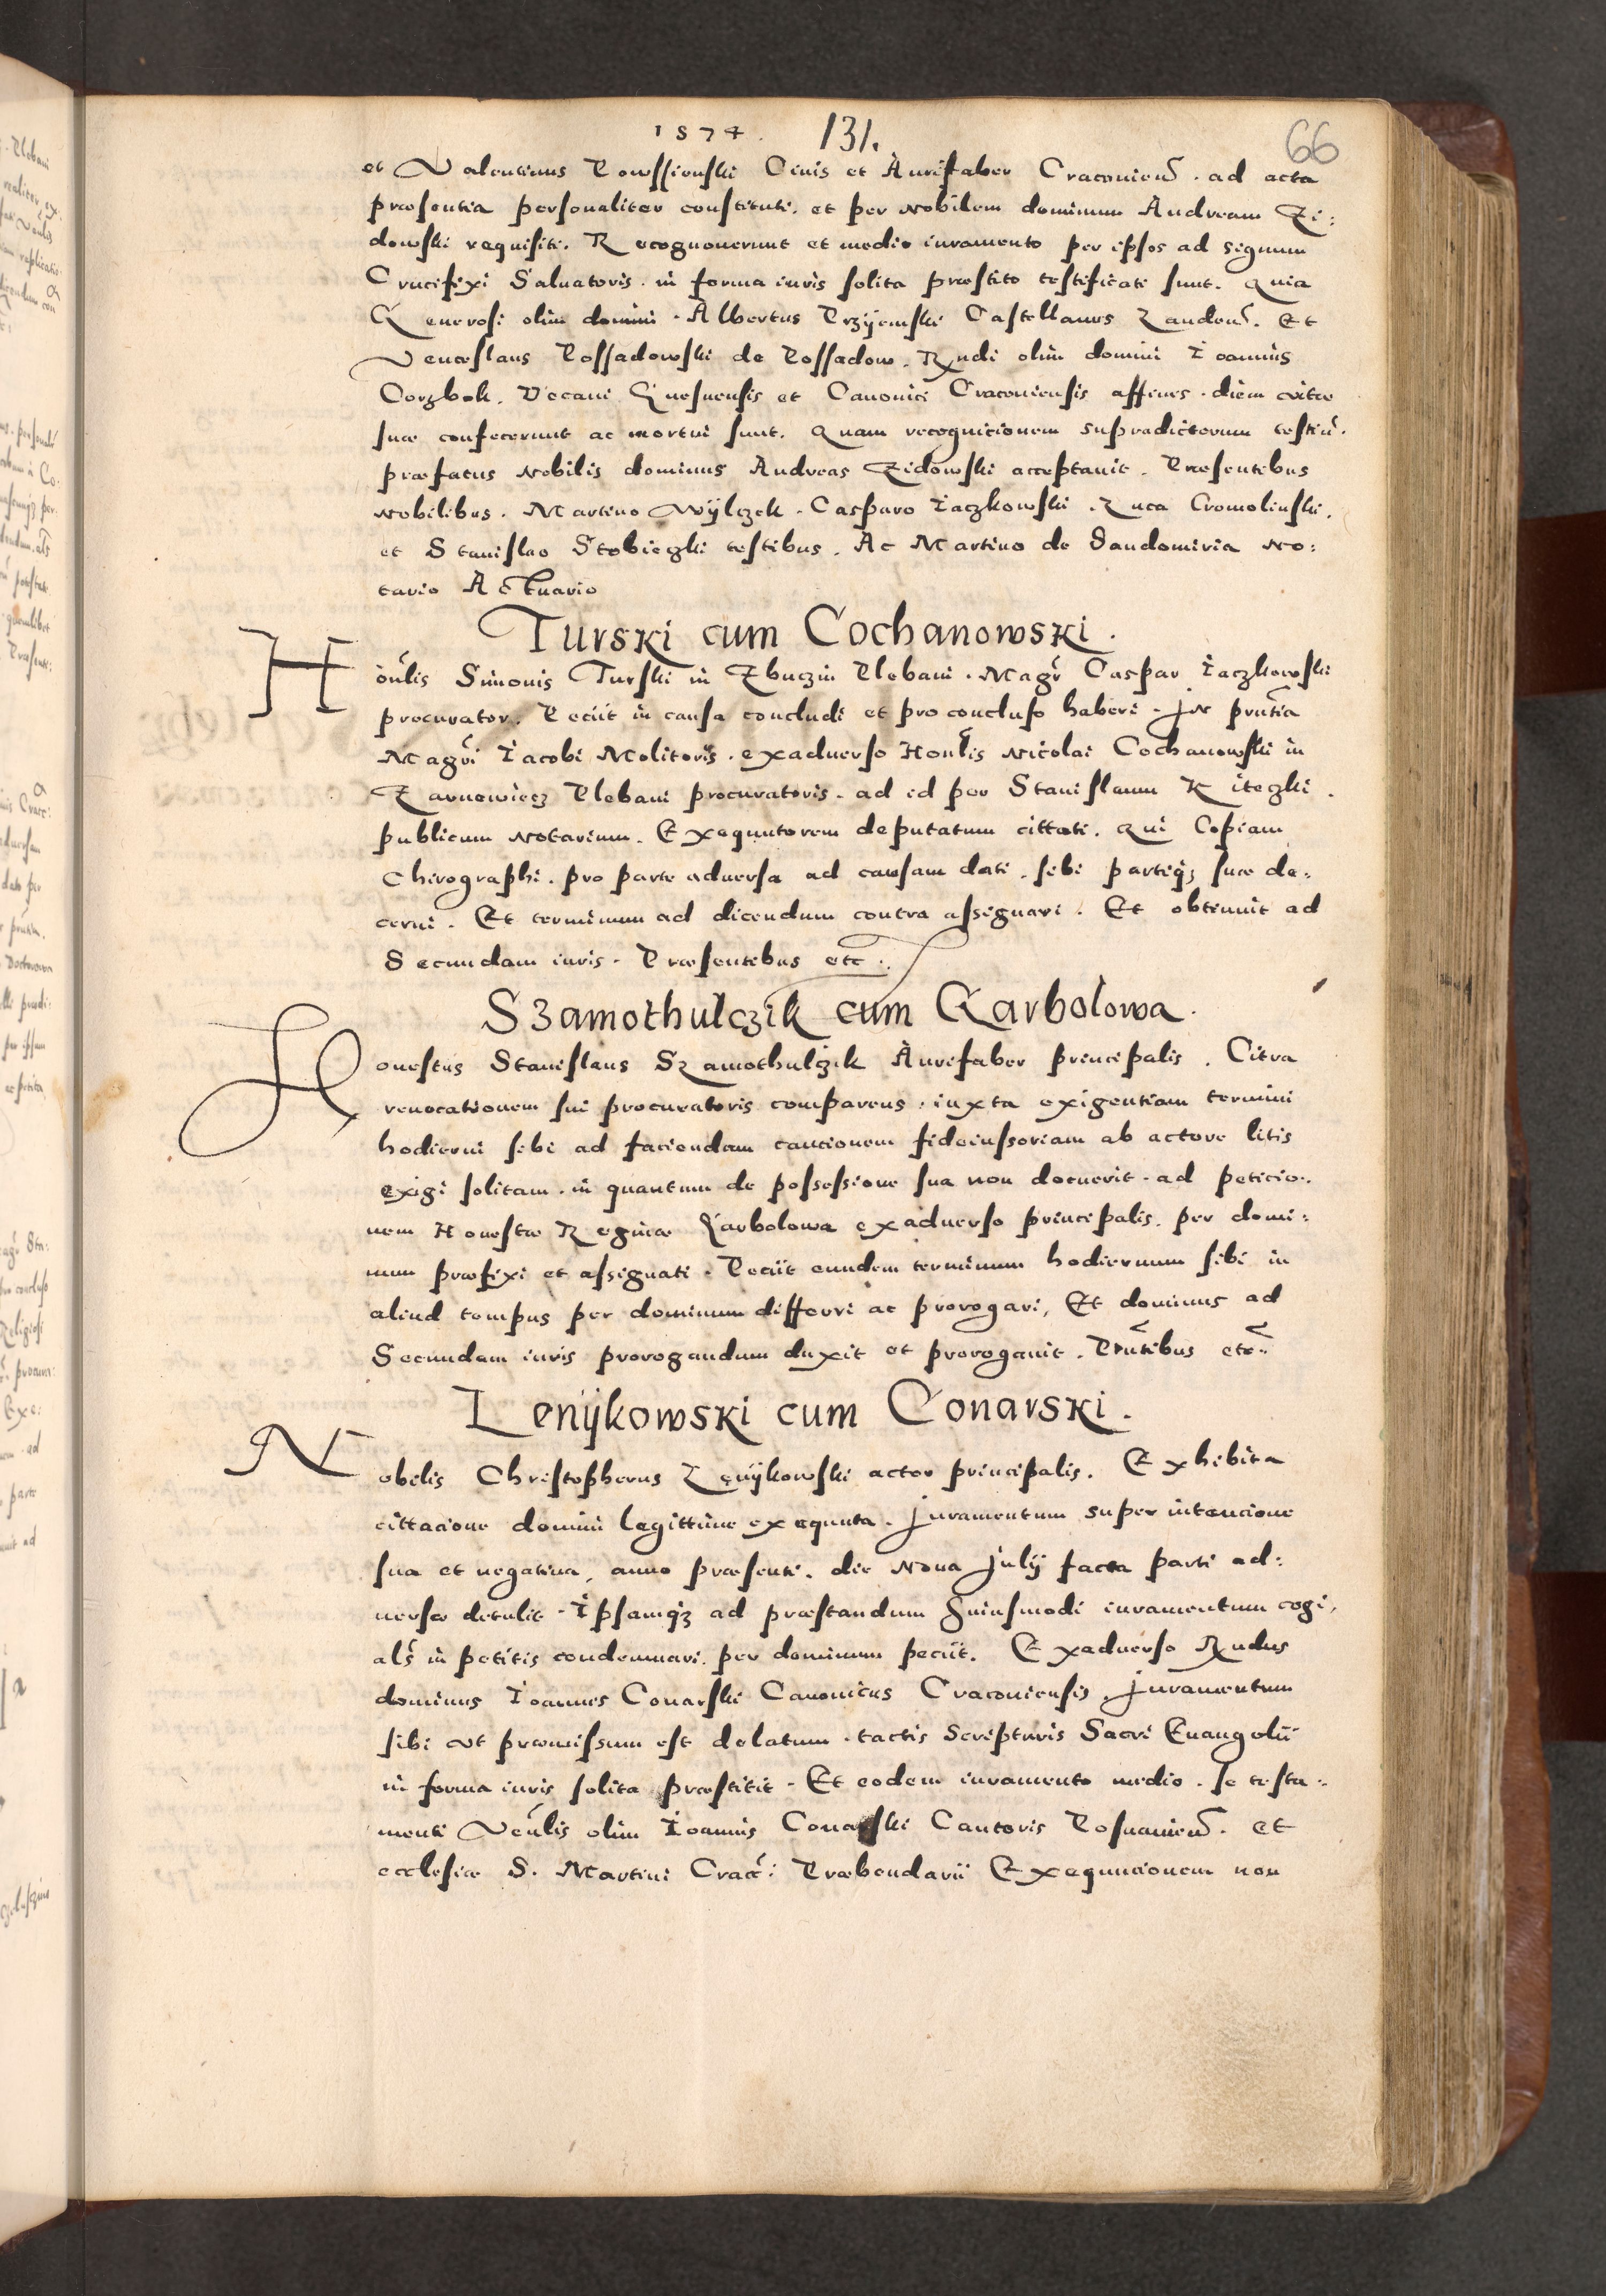 1574. 131. 66
et Valentinus Powssienski Ciuis et Aurifaber Cracouien̄. ad acta
præsentia personaliter constituti. et per Nobilem dominum Andream Zi:
dowski requisiti. Recognouerunt et medio iuramento per ipsos ad signum
Crucifixi Saluatoris in forma iuris solita præstito testificati sunt. Quia
Generosi olim domini. Albertus Przyiemski Castellanus Landen̄. Et
Venceslaus Possadowski de Possadow. Rndi olim domini Ioannis
Corzbok. Decani Gnesnensis et Canonici Cracouiensis affines. diem vitæ
suæ confecerunt ac mortui sunt. Quam recognicionem supradictorum testiū.
præfatus Nobilis dominus Andreas Zidowski acceptauit. Præsentibus
Nobilibus. Martino Wÿlczek. Casparo Iaczkowski. Luca Cromolinski.
et Stanislao Stobieczki testibus. Ac Martino de Sandomiria No:
tario Actuario
Turski cum Cochanowski.
Hon̄lis Simonis Turski in Zbuczin Plebani. Magr̄ Caspar Iaczkowski
procurator. Peciit in causa concludi et pro concluso haberi. In pn̄tia
Magr̄i Iacobi Molitoris. exaduerso Hon̄lis Nicolai Cochanowski in
Zarnowiecz Plebani procuratoris. ad id per Stanislaum Kiteczki.
publicum Notarium. Exequutorem deputatum cittati. Qui Copiam
Chirographi. pro parte aduersa ad causam dati. sibi partiq; suæ de:
cerni. Et terminum ad dicendum contra assignari. Et obtinuit ad
Secundam iuris. Præsentibus etc.
Szamothulczik cum Garbolowa.
Honestus Stanislaus Szamothulczik Aurifaber principalis. Citra
reuocationem sui procuratoris comparens. iuxta exigentiam termini
hodierni sibi ad faciendam caucionem fideiussoriam ab actore litis
exigi solitam. in quantum de possessione sua non docuerit. ad peticio:
nem Honestæ Reginæ Garbolowa exaduerso principalis. per domi:
num præfixi et assignati. Peciit eundem terminum hodiernum sibi in
aliud tempus per dominum differri ac prorogari, Et dominus ad
Secundam iuris prorogandum duxit et prorogauit. Pn̄tibus etc̄.
Lenÿkowski cum Conarski.
Nobilis Christopherus Lenÿkowski actor principalis. Exhibita
cittacione domini legittime exequuta. Iuramentum super intencione
sua et negatiua, anno præsenti. die Nona Julÿ facta parti ad:
uersæ detulit. Ipsamq; ad præstandum huiusmodi iuramentum cogi,
als̄ in petitis condemnari. per dominum peciit. Exaduerso Rndus
dominus Ioannes Conarski Canonicus Cracouiensis, Juramentum
sibi vt præmissum est delatum. tactis Scripturis Sacri Euangelii
in forma iuris solita præstitit. Et eodem iuramento medio. se testa:
menti Ven̄lis olim Ioannis Conarski Cantoris Posnanien̄. et
ecclesiæ S. Martini Crac̄: Præbendarii Exequucionem non